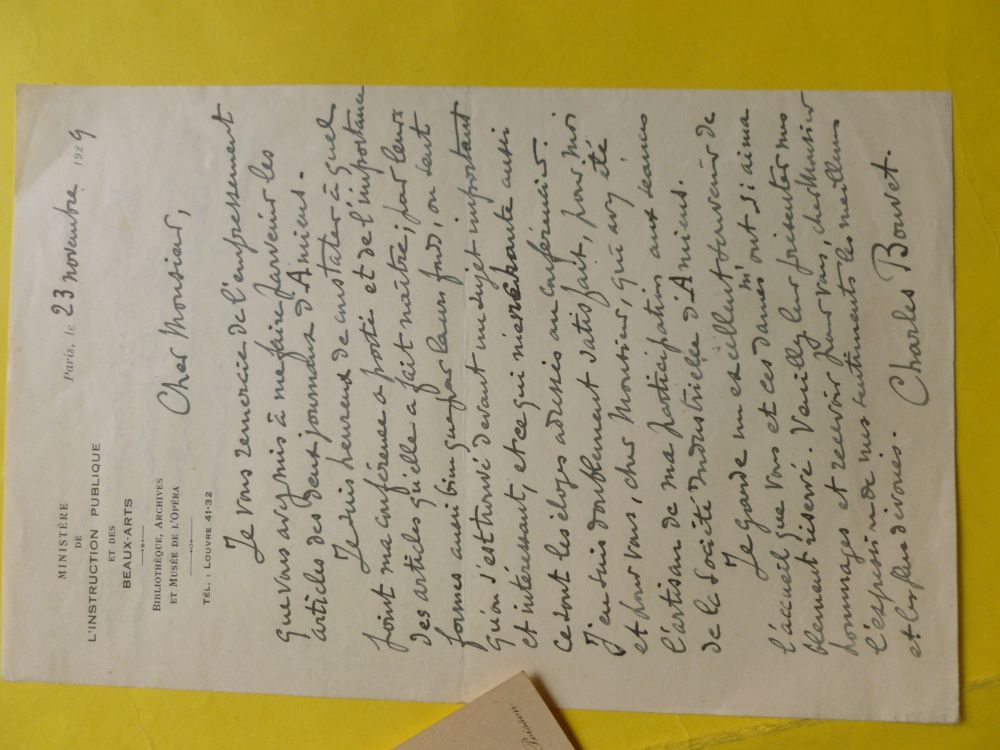 MINISTÈRE
DE
L'INSTRUCTION PUBLIQUE
ET DES
BEAUX-ARTS
BIBLIOTHÈQUE, ARCHIVES
ET MUSÉE DE L'OPÉRA
TÉL. : LOUVRE 41-32
Paris, le 23 novembre 1929
Cher Monsieur,
Je vous remercie de l'empressement
que vous avez mis à me faire parvenir les
articles des deux journaux d'Amiens.
Je suis heureux de constater à quel
point ma conférence a porté et de l'importance
des articles qu'elle a fait naître; par leurs
formes aussi bien que par leurs fond, on sent
qu'on s'est trouvé devant un sujet important
et intéressant, et ce qui m'enchante aussi
ce sont les éloges adressés au conférencier.
J'en suis doublement satisfait, pour moi
et pour vous, cher Monsieur, qui avez été
l'artisan de ma participation aux séances
de la Société Industrielle d'Amiens.
Je garde un excellent souvenir de
l'accueil que vous et ces dames m'ont si aima
blement réservé. Veuillez leur présenter mes
hommages et recevoir pour vous, cher Monsieur
l'expression de mes sentiments les meilleurs
et les plus dévoués.
Charles Bouvet.
Poisson